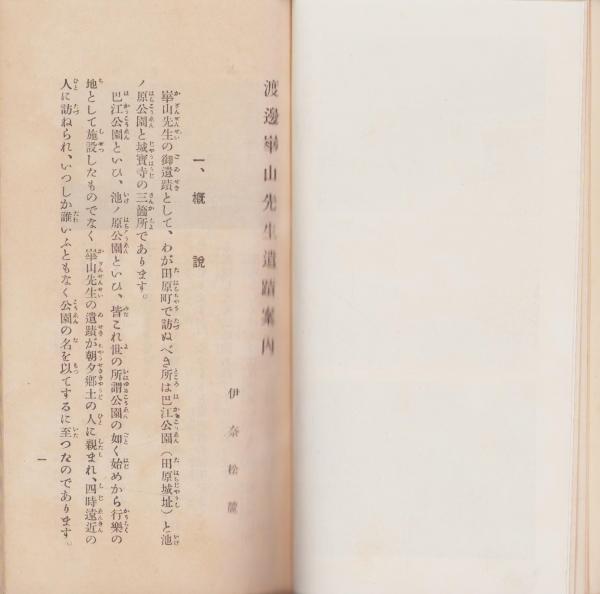 渡邊崋山先生遺蹟案内
伊奈松麓
一、概說
崋山先生の御遺蹟として、わが田原町で訪ぬべき所は巴江公園(田原城址)と池
ノ原公園と城寶寺の三箇所であります。
巴江公園といひ、池ノ原公園といひ、皆これ世の所謂公園の如く始めから行樂の
地として施設したものでなく崋山先生の遺蹟が朝夕鄉土の人に親まれ、四時遠近の
人に訪ねられ、いつしか誰いふともなく公園の名を以てするに至つたのであります。
一